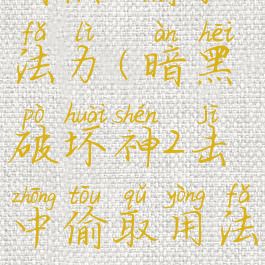 fǎ lì àn hēi
法力(暗黑
pò huài shén jī
破坏神2击
zhōng tōu qǔ yòng fǎ
中偷取用法